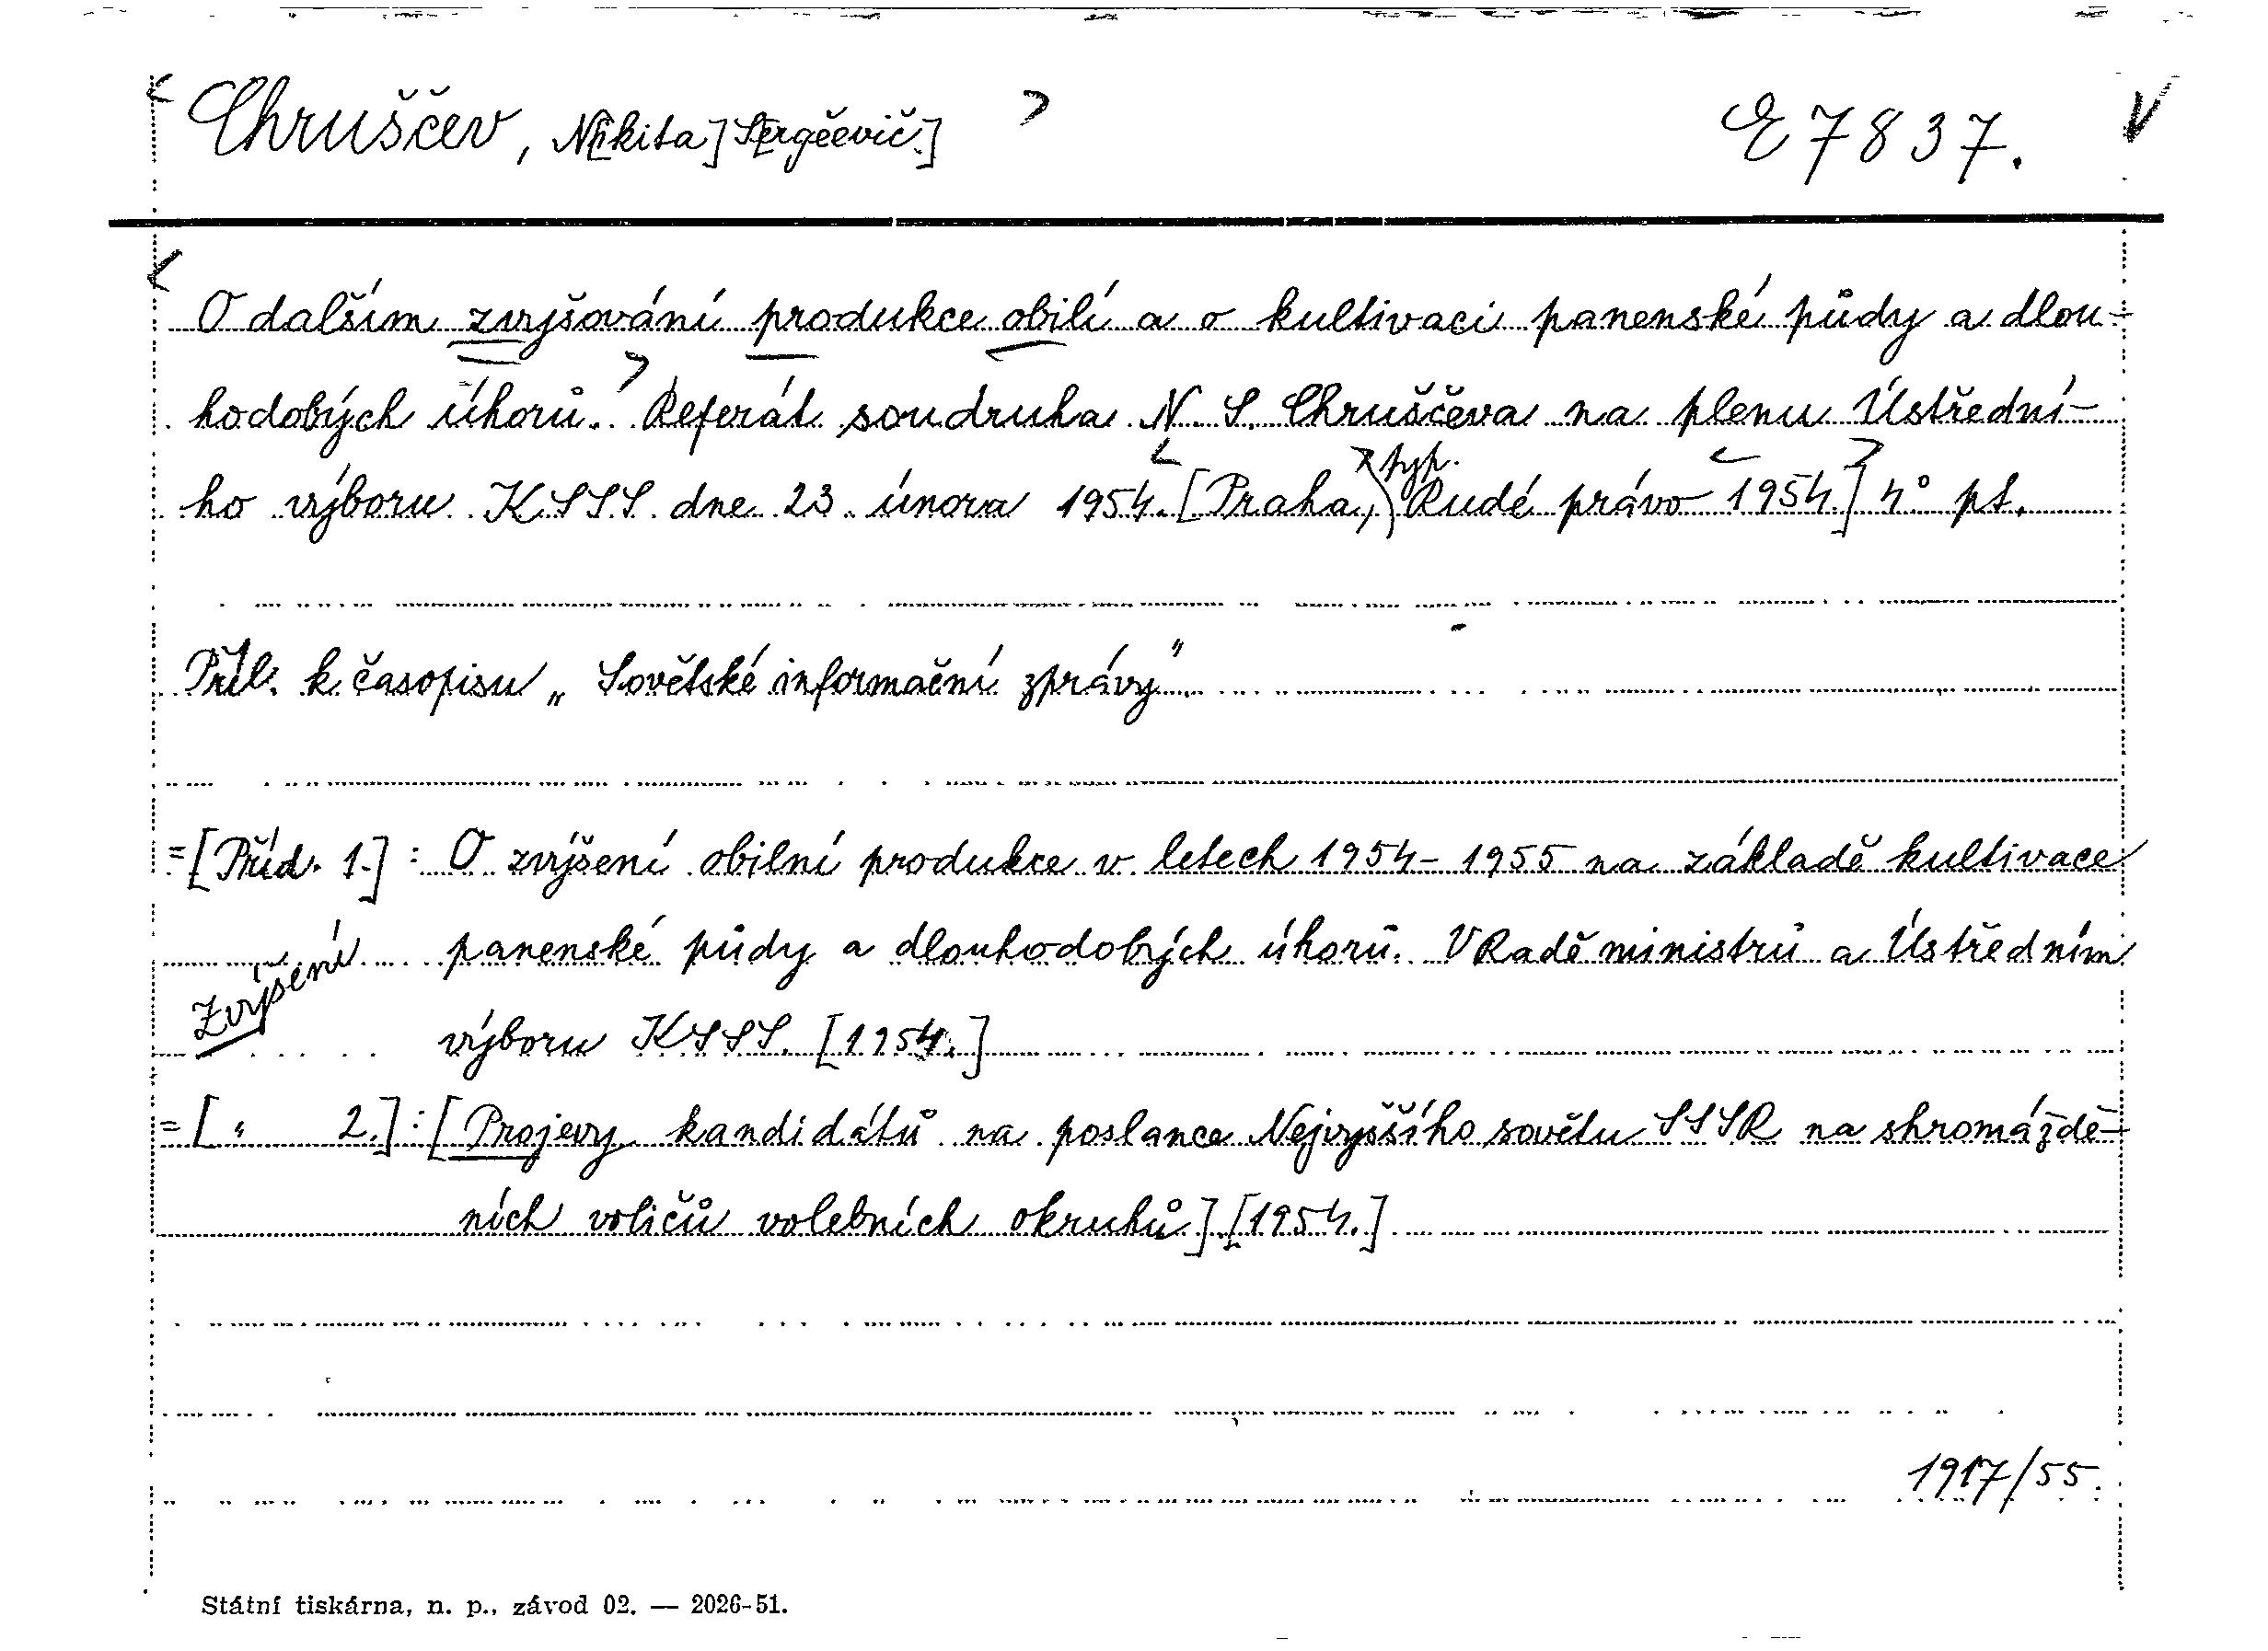 Chruščev, N[ikita] S[ergěevič.] E 7837.
O dalším zvyšování produkce obilí a o kultivaci panenské půdy a dlou-
hodobých úhorů. Referát soudruha N. S. Chruščěva na plenu Ústřední-
ho výboru KSSS dne 23. února 1954. [Praha,) typ. Rudé právo 1954.] 4° pt.
Příl. k časopisu „Sovětské informační zprávy"
=[Příd. 1.]: O zvýšení obilní produkce v letech 1954-1955 na základě kultivace
panenské půdy a dlouhodobých úhorů. V Radě ministrů a Ústředním
Zvýšení
výboru KSSS. [1954.]
=[" 2.]:[Projevy kandidátů na poslance Nejvyššího sovětu SSSR na shromáždě-
ních voličů volebních okruhů] [1954.]
1917/55.
Státní tiskárna, n. p., závod 02. — 2026-51.